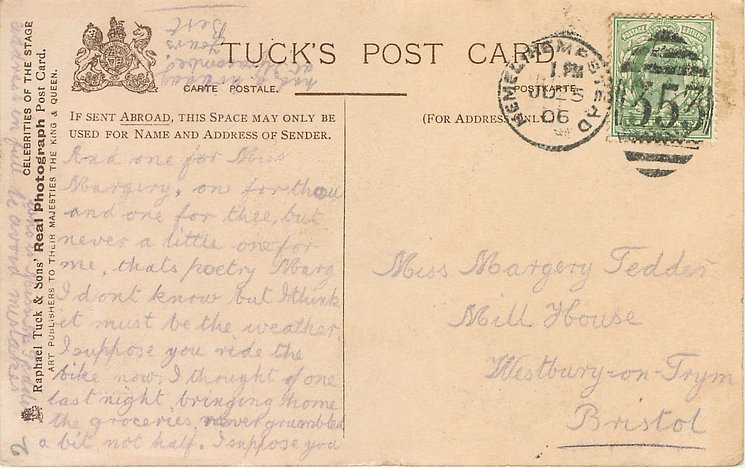 TUCK'S POST CARD
CARTE POSTALE.
POSTKARTE.
IF SENT ABROAD, THIS SPACE MAY ONLY BE
USED FOR NAME AND ADDRESS OF SENDER.
(FOR ADDRESS ONLY.)
HEMEL HEMPSTEAD
1 PM
JU 5
06
POSTAGE
353
CELEBRITIES OF THE STAGE
Raphael Tuck & Sons' Real Photograph Post Card.
ART PUBLISHERS TO THEIR MAJESTIES THE KING & QUEEN.
And one for Miss
Margery, one for thou
and one for thee, but
never a little one for
me, thats poetry Marg
I dont know but I think
it must be the weather.
I suppose you ride the
bike now, I thought of one
last night bringing home
the groceries, never grumbled
a bit not half. I suppose you
had a
Yours
Bert
in full to avoid mistakes
Miss Margery Tedder
Mill House
Westbury-on-Trym
Bristol